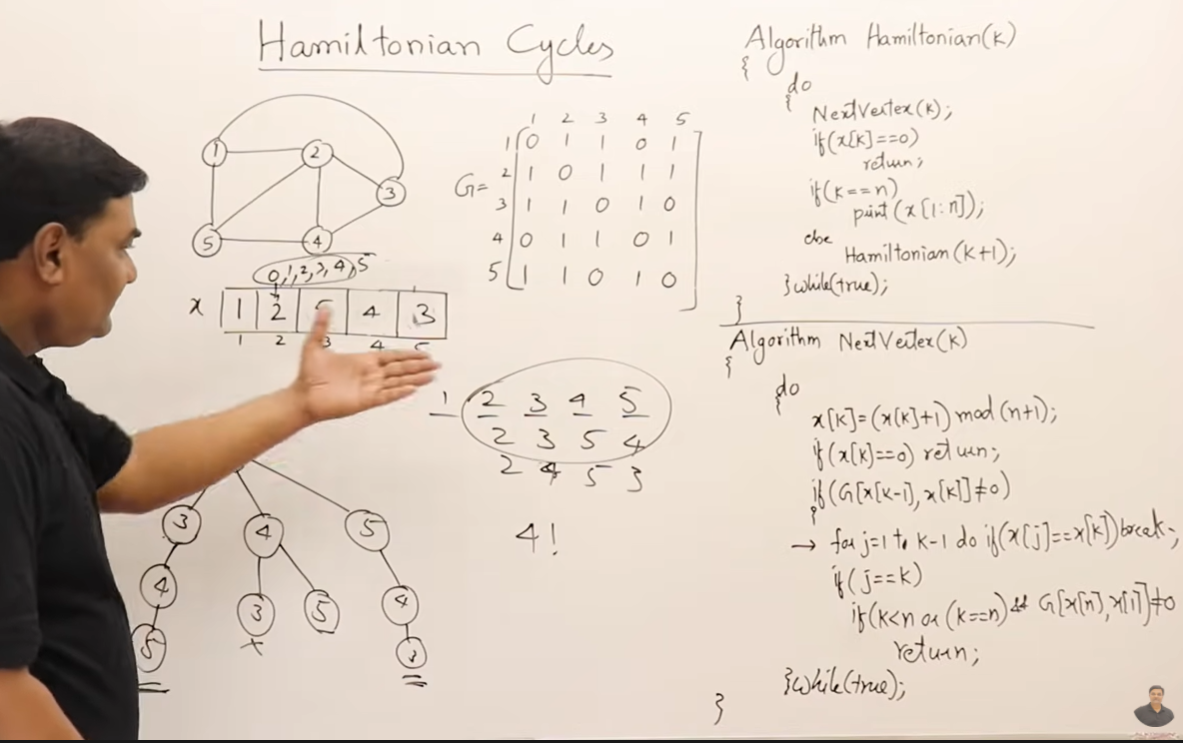 Hamiltonian Cycles
1 2 3 4 5
1 2 3 4 5
G= 1 0 1 1 0 1
2 1 0 1 1 1
3 1 1 0 1 0
4 0 1 1 0 1
5 1 1 0 1 0
0,1,2,3,4,5
x 1 2 5 4 3
1 2 3 4 5
1 2 3 4 5
2 3 5 4
2 4 5 3
4!
3 4 5
4 3 5 4
5 x 3
Algorithm Hamiltonian(k)
{
do
{
NextVertex(k);
if(x[k]==0)
return;
if(k==n)
print(x[1:n]);
else
Hamiltonian(k+1);
}while(true);
}
Algorithm NextVertex(k)
{
do
{
x[k]=(x[k]+1)mod(n+1);
if(x[k]==0) return;
if(G[x[k-1],x[k]]≠0)
{
→ for j=1 to k-1 do if(x[j]==x[k])break;
if(j==k)
if(k<n or (k==n)&& G[x[n],x[1]]≠0
return;
}while(true);
}